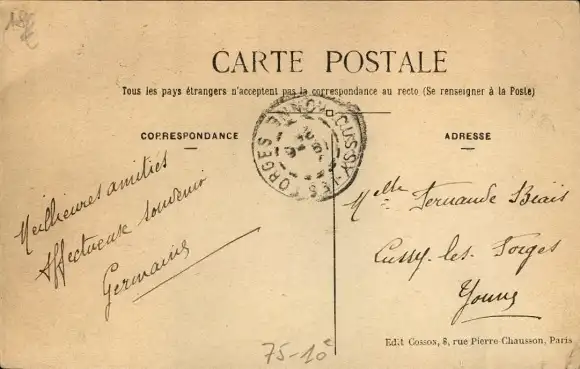 18€
CARTE POSTALE
Tous les pays étrangers n'acceptent pas la correspondance au recto (Se renseigner à la Poste)
CUSSY-LES FORGES YONNE
CORRESPONDANCE
Meilleures amitiés
Affectueuse souvenir
Germaine
ADRESSE
Melle Fernande Biais
Cussy-les-Forges
Yonne
Edit Cosson, 8, rue Pierre Chausson, Paris
75-10e